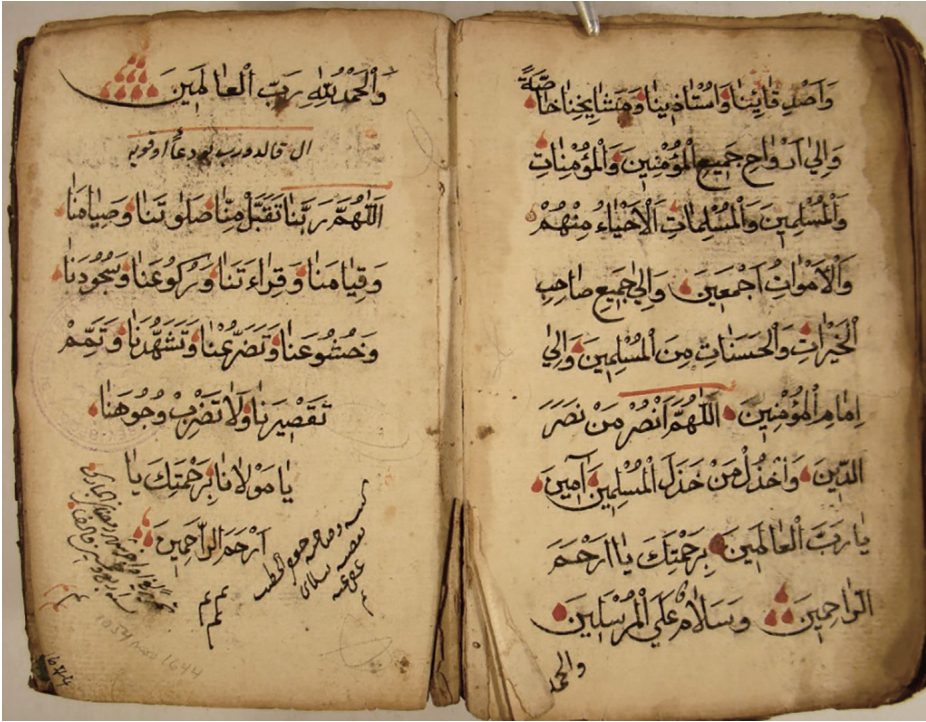 وَاَصْدِقَائِنَا وَاُسْتَاذِينَا وَمَشَايِخِنَا خَاصَّةً
وَاِلٰي اَرْوَاحِ جَمِيعِ الْمُؤْمِنِينَ وَالْمُؤْمِنَاتِ
وَالْمُسْلِمِينَ وَالْمُسْلِمَاتِ الْاَحْيَاءُ مِنْهُمْ
وَالْاَمْوَاتُ اَجْمَعِينَ وَاِلٰي جَمِيعِ صَاحِبِ
الْخَيْرَاتِ وَالْحَسَنَاتِ مِنَ الْمُسْلِمِينَ وَاِلٰي
اِمَامِ الْمُؤْمِنِينَ اَللّٰهُمَّ انْصُرْ مَنْ نَصَرَ
الدِّينَ وَاخْذُلْ مَنْ خَذَلَ الْمُسْلِمِينَ اٰمِينَ
يَا رَبَّ الْعَالَمِينَ بِرَحْمَتِكَ يَا اَرْحَمَ
الرَّاحِمِينَ وَسَلَامٌ عَلَي الْمُرْسَلِينَ
والحمد
وَالْحَمْدُ لِلّٰهِ رَبِّ الْعَالَمِينَ
اَللّٰهُمَّ رَبَّنَا تَقَبَّلْ مِنَّا صَلٰوتَنَا وَصِيَامَنَا
وَقِيَامَنَا وَقِرَاءَتَنَا وَرُكُوعَنَا وَسُجُودَنَا
وَخُشُوعَنَا وَتَضَرُّعَنَا وَتَشَهُّدَنَا وَتَمِّمْ
تَقْصِيرَنَا وَلَا تَضْرِبْ وُجُوهَنَا
يَا مَوْلَانَا بِرَحْمَتِكَ يَا
اَرْحَمَ الرَّاحِمِينَ
1644
1644